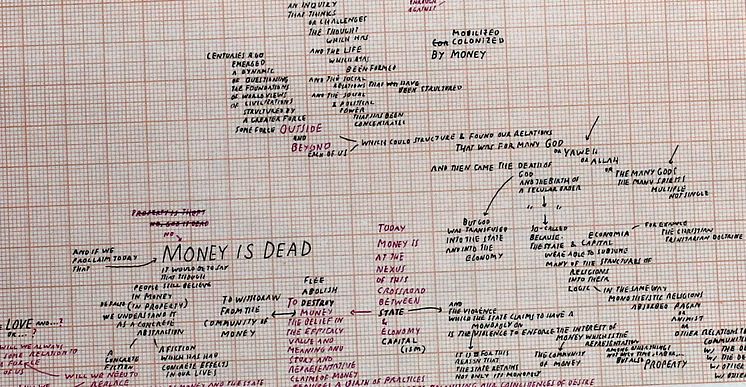 AN INQUIRY
THAT THINKS
OR CHALLENGES
THE THOUGHT
WHICH HAS
AND THE LIFE
WHICH HAS
BEEN FORMED
AND THE SOCIAL
RELATIONS THAT HAVE
BEEN STRUCTURED
AND THE SOCIAL
& POLITICAL
POWER
THAT HAS BEEN
CONCENTRATED
THROUGH
AGAINST
MOBILIZED
COLONIZED
BY MONEY
CENTURIES AGO
EMERGED
A DYNAMIC
OF QUESTIONING
THE FOUNDATIONS
OF WORLD VIEWS
OF CIVILIZATIONS
STRUCTURED BY
A GREATER FORCE
SOME FORCE OUTSIDE
AND
BEYOND
EACH OF US
WHICH COULD STRUCTURE & FOUND OUR RELATIONS
THAT WAS FOR MANY GOD
OR YAWEH
OR ALLAH
OR THE MANY GODS
THE MANY SPIRITS
MULTIPLE
NOT SINGLE
AND THEN CAME THE DEATH OF
GOD
AND THE BIRTH OF
A SECULAR ORDER
BUT GOD
WAS TRANSFUSED
INTO THE STATE
AND INTO THE
ECONOMY
SO-CALLED
BECAUSE
THE STATE & CAPITAL
WERE ABLE TO SUBSUME
MANY OF THE STRUCTURES OF
RELIGIONS
INTO THEIR
LOGIC
ECONOMIA
FOR EXAMPLE
THE CHRISTIAN
TRINITARIAN DOCTRINE
IN THE SAME WAY
MONOTHEISTIC RELIGIONS
ABSORBED PAGAN
OR
ANIMIST
OR OTHER RELATIONS TO
PROPERTY IS THEFT
NO, GOD IS DEAD
NO
AND IF WE
PROCLAIM TODAY
THAT
MONEY IS DEAD
IT WOULD BE TO SAY
THAT THOUGH
PEOPLE STILL BELIEVE
IN MONEY
(IN PROPERTY)
WE UNDERSTAND IT
AS A CONCRETE
ABSTRACTION
A
CONCRETE
FICTION
A FICTION
WHICH HAS HAD
CONCRETE EFFECTS
IN OUR LIVES
TO WITHDRAW
FROM THE
COMMUNITY OF
MONEY
FLEE
ABOLISH
TO DESTROY
MONEY
THE BELIEF IN
THE EFFICACY
VALUE AND
MEANING AND
STORY AND
REPRESENTATIVE
CLAIMS OF MONEY
TODAY
MONEY IS
AT THE
NEXUS
OF THIS
CROSSROAD
BETWEEN
STATE
&
ECONOMY
CAPITAL
(ISM)
AND
THE VIOLENCE
WHICH THE STATE CLAIMS TO HAVE A
MONOPOLY ON
IS THE VIOLENCE TO ENFORCE THE INTEREST OF
MONEY WHICH IS THE
REPRESENTATIVE
IT IS FOR THIS
REASON THAT
THE STATE RETAINS
NOT ONLY ITS MONOPOLY
THE COMMUNITY
OF MONEY
PROPERTY
LOVE AND...?
OR...?
WILL WE ALWAYS
SOME RELATION
TO A FORCE
OF US
WILL WE NEED TO
REPLACE
MONEY AND THE STATE
A CHAIN OF PRACTICES